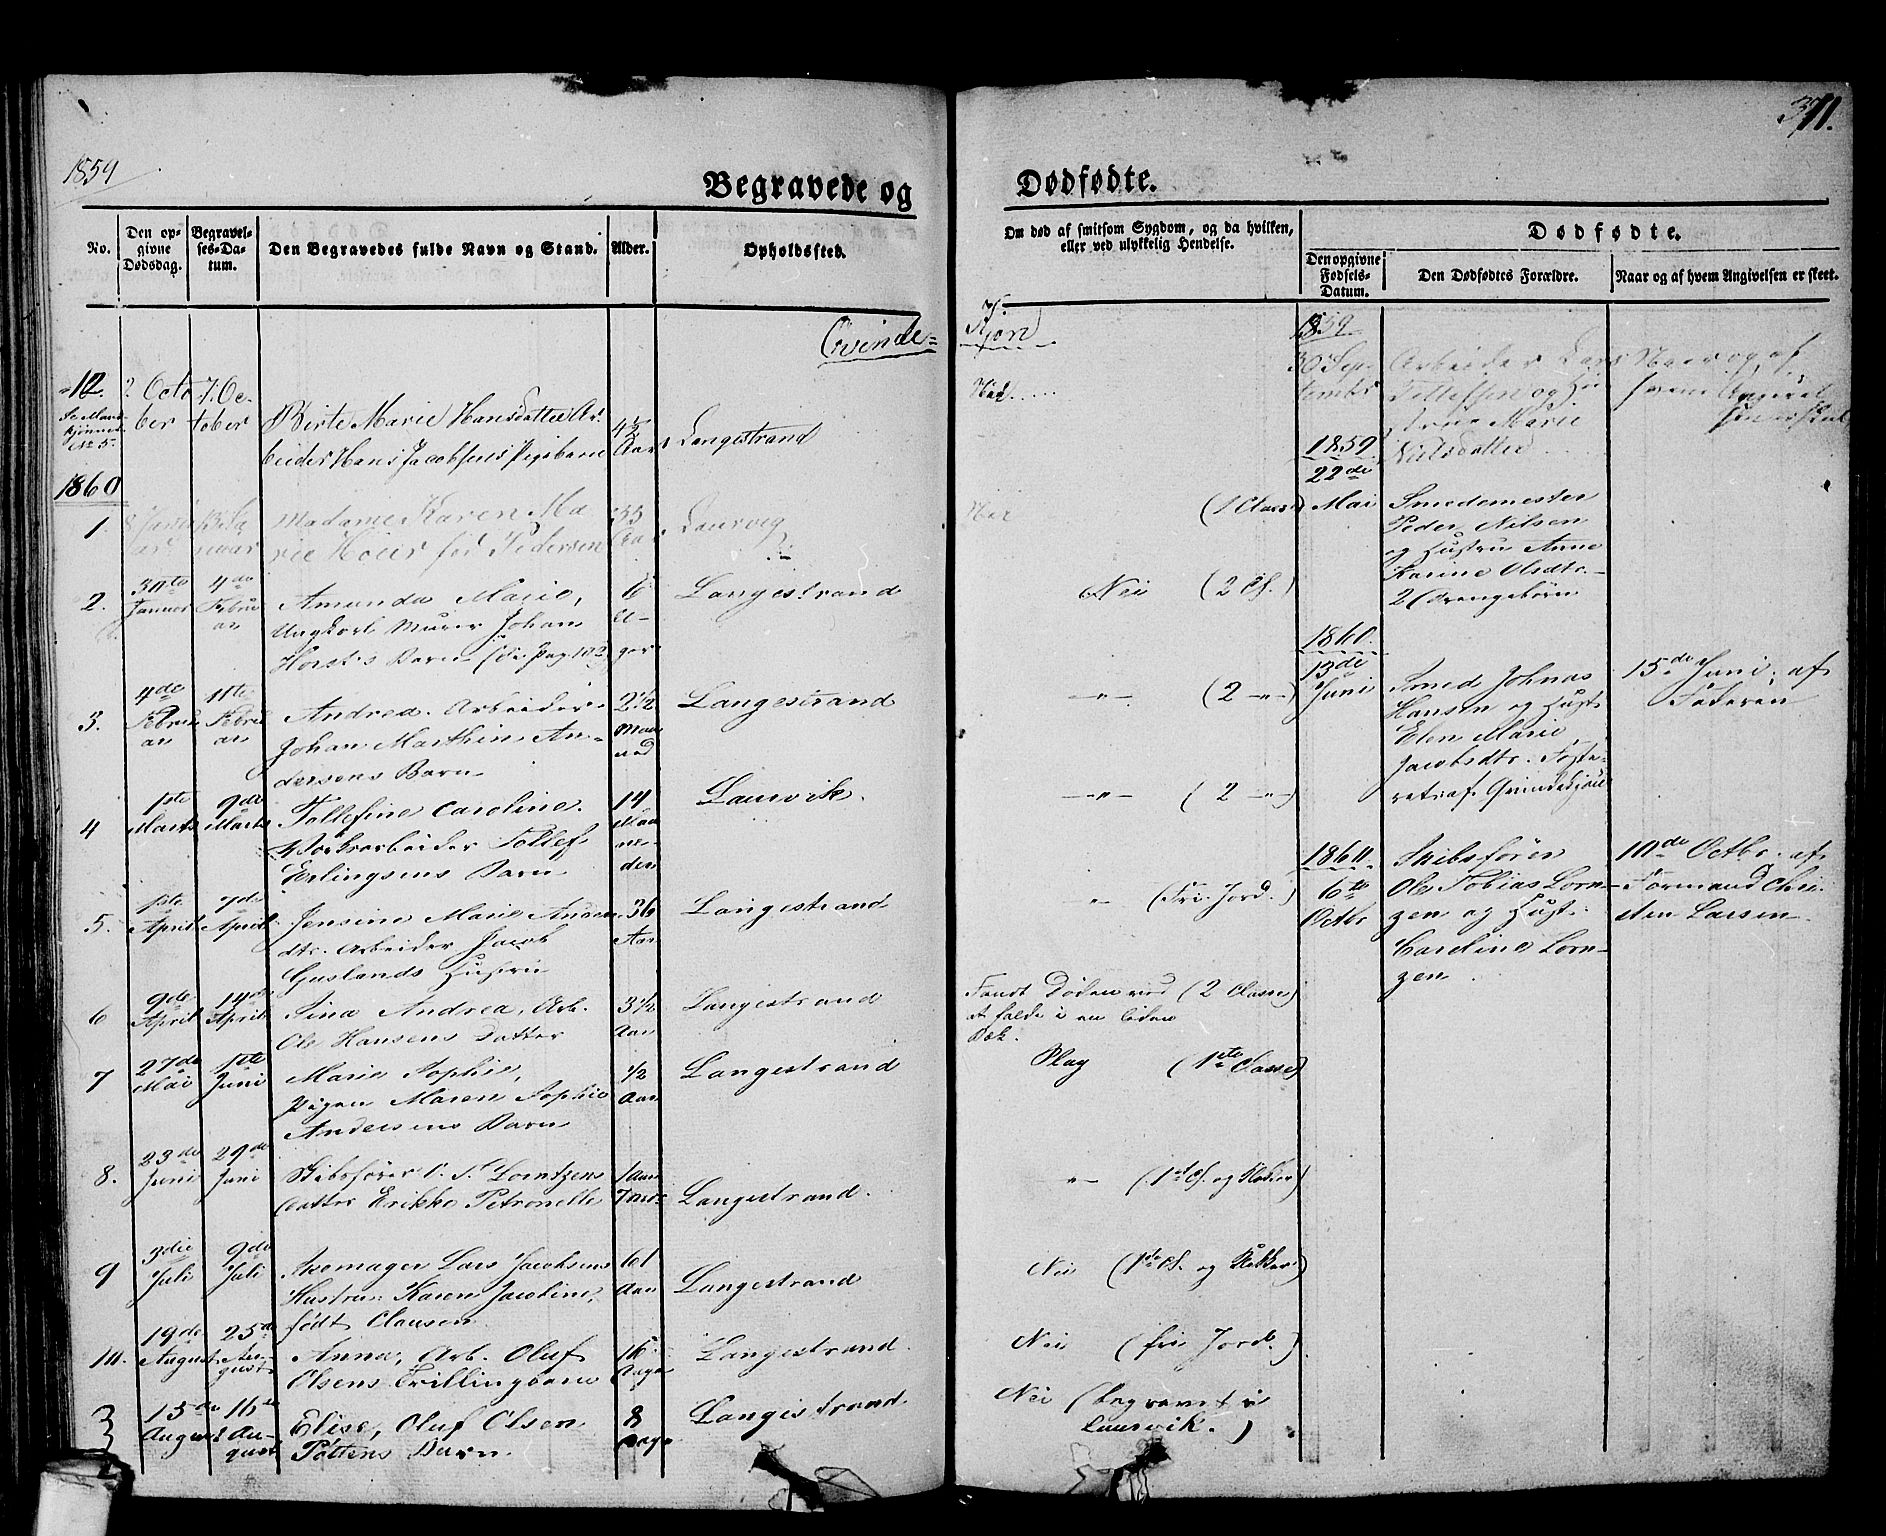 1859
371.
Begravede og Dødfødte.
No.
Den opgivne Dødsdag.
Begravelses-Datum.
Den Begravedes fulde Navn og Stand.
Alder.
Opholdssted.
Om død af smitsom Sygdom, og da hvilken,
eller ved ulykkelig Hendelse.
Dødfødte.
Den opgivne Fødsels-Datum.
Den Dødfødtes Forældre.
Naar og af hvem Angivelsen er skeet.
Qvinde-
Kjøn
12. Octo 7. Oc-
ber tober Birte Marie Hansdatter Ar-
beider Hans Jacobsens Pigebarn Langestrand
1860
1. Madame Karen Ma 55 Laurvig
rie Høier fød Pedersen Aar
(1 Classe)
2. Januar 4de Februar Amanda Marie, 6 Langestrand
Ungkarl Murer Johan
Horst's Barn
Nei (2 Cl.)
3. 4de Februar 11te Februar Andrea. Arbeider 2 1/2 Langestrand
Johan Marthin An-
dersens Barn
-"- (2 -"-)
4 1ste Marts 9de Marts Tollefine Caroline. 14 Laurvik.
Tollef
Erlingsens Barn
-"- (2 -"-)
5. 1ste April 7de April Jensine Marie 36 Langestrand
dtr. Arbeider Jacob Aar
Guslands Hustru
" (Fri Jord.)
6 9de April 14de April Sina Andrea, Arb. 3 1/2 Langestrand
Ole Hansens Datter Aar
Fandt Døden ved (2 Classe)
at falde i en liden
Bæk.
7 27de Mai 1ste Juni Marie Sophie, 1/2 Langestrand
Pigen Maren Sophie Aar
Andersens Barn
(1ste Classe)
8. 23de Juni 29de Juni Skibsfører Lorntzens 1 Aar
Datter Erikke Petronelle Langestrand.
-"- (1ste Cl. og Klokker)
9 3die Juli 9de Juli Lars Jacobsens 61
Hustru Karen Jacobine, Aar Langestrand
født Clausen
Nei (1ste Cl. og Klokker)
10. 19de August 25de August Anna, Arb. Oluf 16 Langestrand.
Olsens Trillingbarn Dage
Nei (fri Jord.)
15de August 16de August Elise, Oluf Olsen 8 Langestrand.
Barn. Dage
Nei (begravet i
Laurvik.)
1859
30 Sep-
tember
Arbeider Lars
Tollefsen og Hu
Marie
Nielsdatter
Naar og af
hvem Angivel
1859
22de
Mai Smedemester
Peder Nilsen
og Hustru Anne
Karine Olsdtr.
2 Drengebørn
1860.
13de
Juni Smed Johnas
Hansen og Hust.
Elen Marie
Jacobsdtr.
15de Juni, af
Faderen
1860.
6te
Octbr Skibsfører
Ole Tobias Lorn-
zen og Hust.
Caroline Lorn-
zen.
10de Octbr. af
Formand Chri-
sten Larsen.